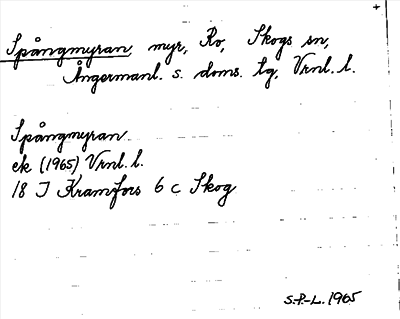 Spångmyran, myr, Ro, Skogs sn,
Ångermanl. s. doms. lg, Vrnl. l.
Spångmyran
ek (1965) Vrnl. l.
18 I Kramfors 6 c Skog
S.P.-L. 1965